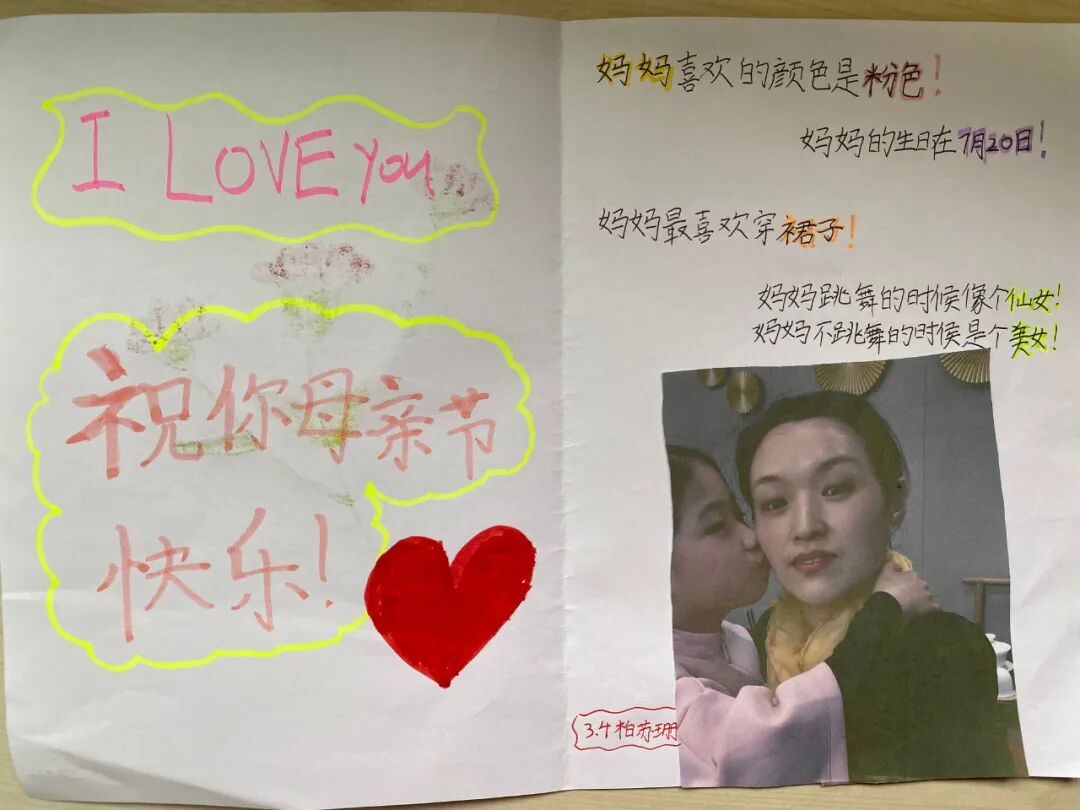 I LOVE you
祝你母亲节
快乐!
妈妈喜欢的颜色是粉色!
妈妈的生日在7月20日!
妈妈最喜欢穿裙子!
妈妈跳舞的时候像个仙女!
妈妈不跳舞的时候是个美女!
3.4 柏苏珊